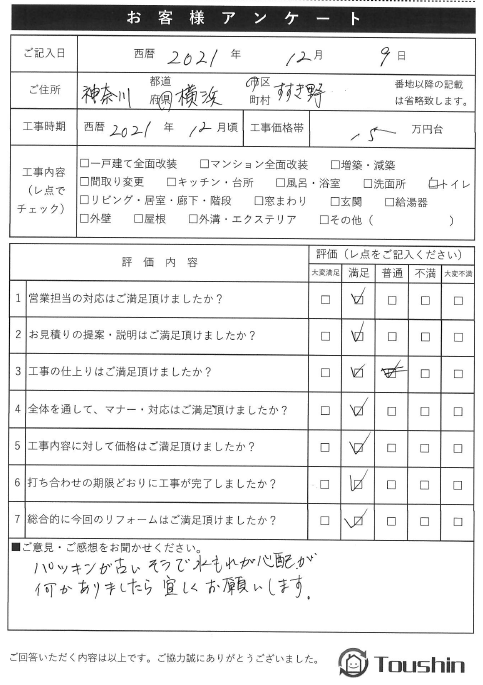 お客様アンケート
ご記入日 西暦 2021 年 12月 9日
ご住所 神奈川 都道府県 横浜 市区町村 すすき野 番地以降の記載は省略致します。
工事時期 西暦 2021 年 12月頃 工事価格帯 15 万円台
工事内容（レ点でチェック）
□一戸建て全面改装 □マンション全面改装 □増築・減築
□間取り変更 □キッチン・台所 □風呂・浴室 □洗面所 □トイレ
□リビング・居室・廊下・階段 □窓まわり □玄関 □給湯器
□外壁 □屋根 □外溝・エクステリア □その他（ ）
評価内容 評価（レ点をご記入ください）
大変満足 満足 普通 不満 大変不満
1 営業担当の対応はご満足頂けましたか？ □ ☑ □ □ □
2 お見積りの提案・説明はご満足頂けましたか？ □ ☑ □ □ □
3 工事の仕上りはご満足頂けましたか？ □ ☑ ☑ □ □
4 全体を通して、マナー・対応はご満足頂けましたか？ □ ☑ □ □ □
5 工事内容に対して価格はご満足頂けましたか？ □ ☑ □ □ □
6 打ち合わせの期限どおりに工事が完了しましたか？ □ ☑ □ □ □
7 総合的に今回のリフォームはご満足頂けましたか？ □ ☑ □ □ □
■ご意見・ご感想をお聞かせください。
パッキンが古いそうで水もれが心配が
何かありましたら宜しくお願いします。
ご回答いただく内容は以上です。ご協力誠にありがとうございました。
Toushin